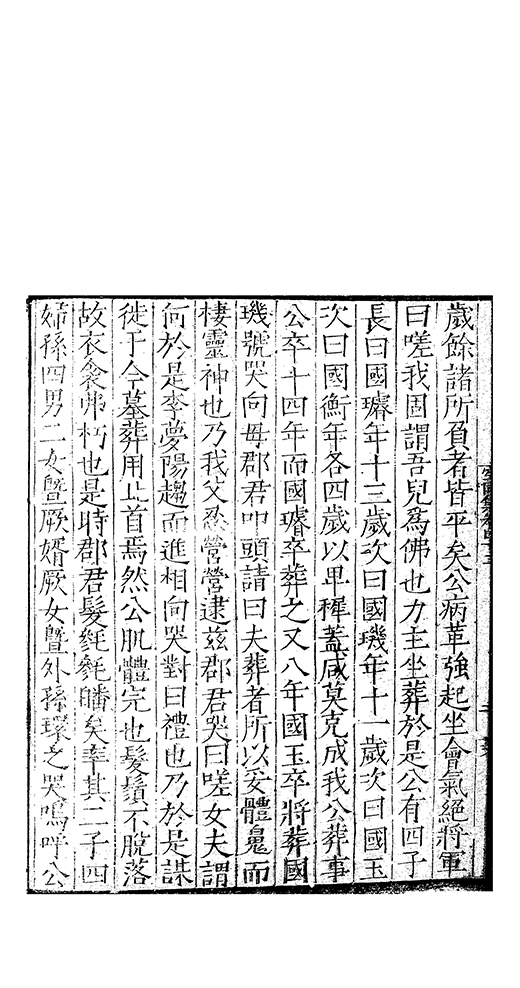 歲餘諸所負者皆平矣公病革強起坐會氣絕將軍
曰嗟我固謂吾兒爲佛也力主坐葬於是公有四子
長曰國璿年十三歲次曰國璣年十一歲次曰國玉
次曰國衡年各四歲以早穉蓋咸莫克成我公葬事
公卒十四年而國璿卒葬之又八年國玉卒將葬國
璣號哭向母郡君叩頭請曰夫葬者所以安體鬼而
棲靈神也乃我父忍營營逮玆郡君哭曰嗟女夫謂
何於是李夢陽趨而進相向哭對曰禮也乃於是諏
徙于今墓葬用止首焉然公肌體完也髮鬚不脫落
故衣衾弗朽也是時郡君髮毿毿皤矣率其二子四
婦孫四男二女曁厥婿厥女曁外孫環之哭嗚呼公